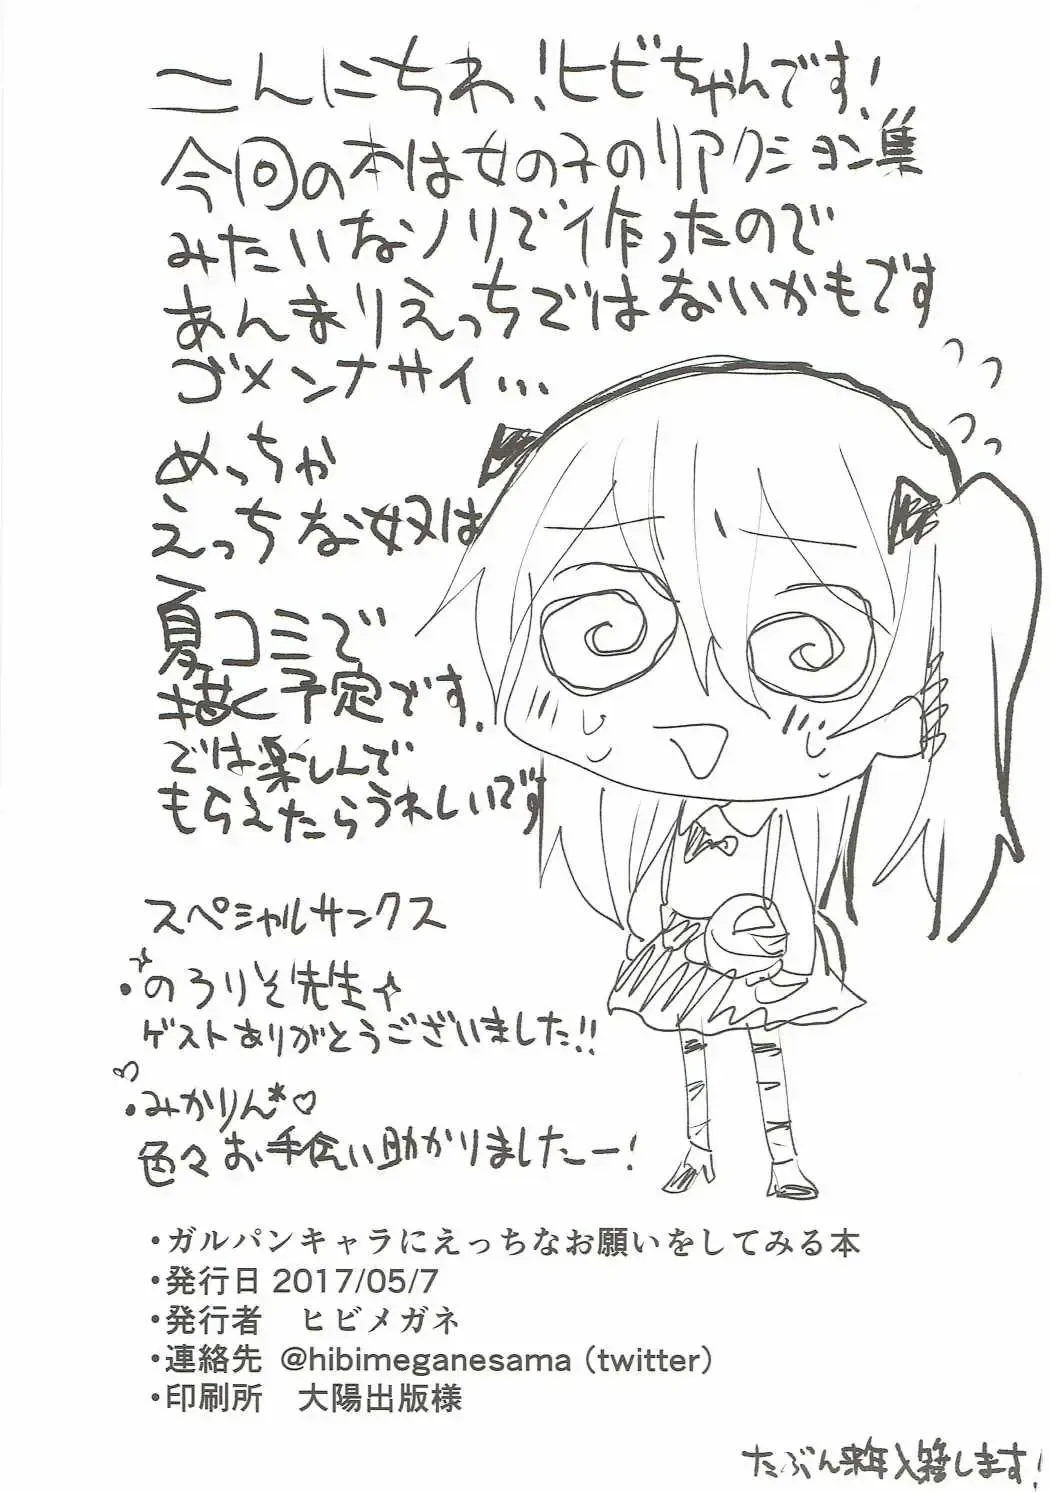 こんにちわ!ヒビちゃんです!
今回の本は女の子のリアクション集
みたいなノリで作ったので
あんまりえっちではないかもです
ゴメンナサイ...
めっちゃ
えっちな奴は
夏コミで
描く予定です.
では楽しんで
もらえたらうれしいです
スペシャルサンクス
・のろりそ先生
ゲストありがとうございました!!
・みかりん*♡
色々お手伝い助かりましたー!
・ガルパンキャラにえっちなお願いをしてみる本
・発行日 2017/05/7
・発行者 ヒビメガネ
・連絡先 @hibimeganesama (twitter)
・印刷所 大陽出版様
たぶん来年入籍します!